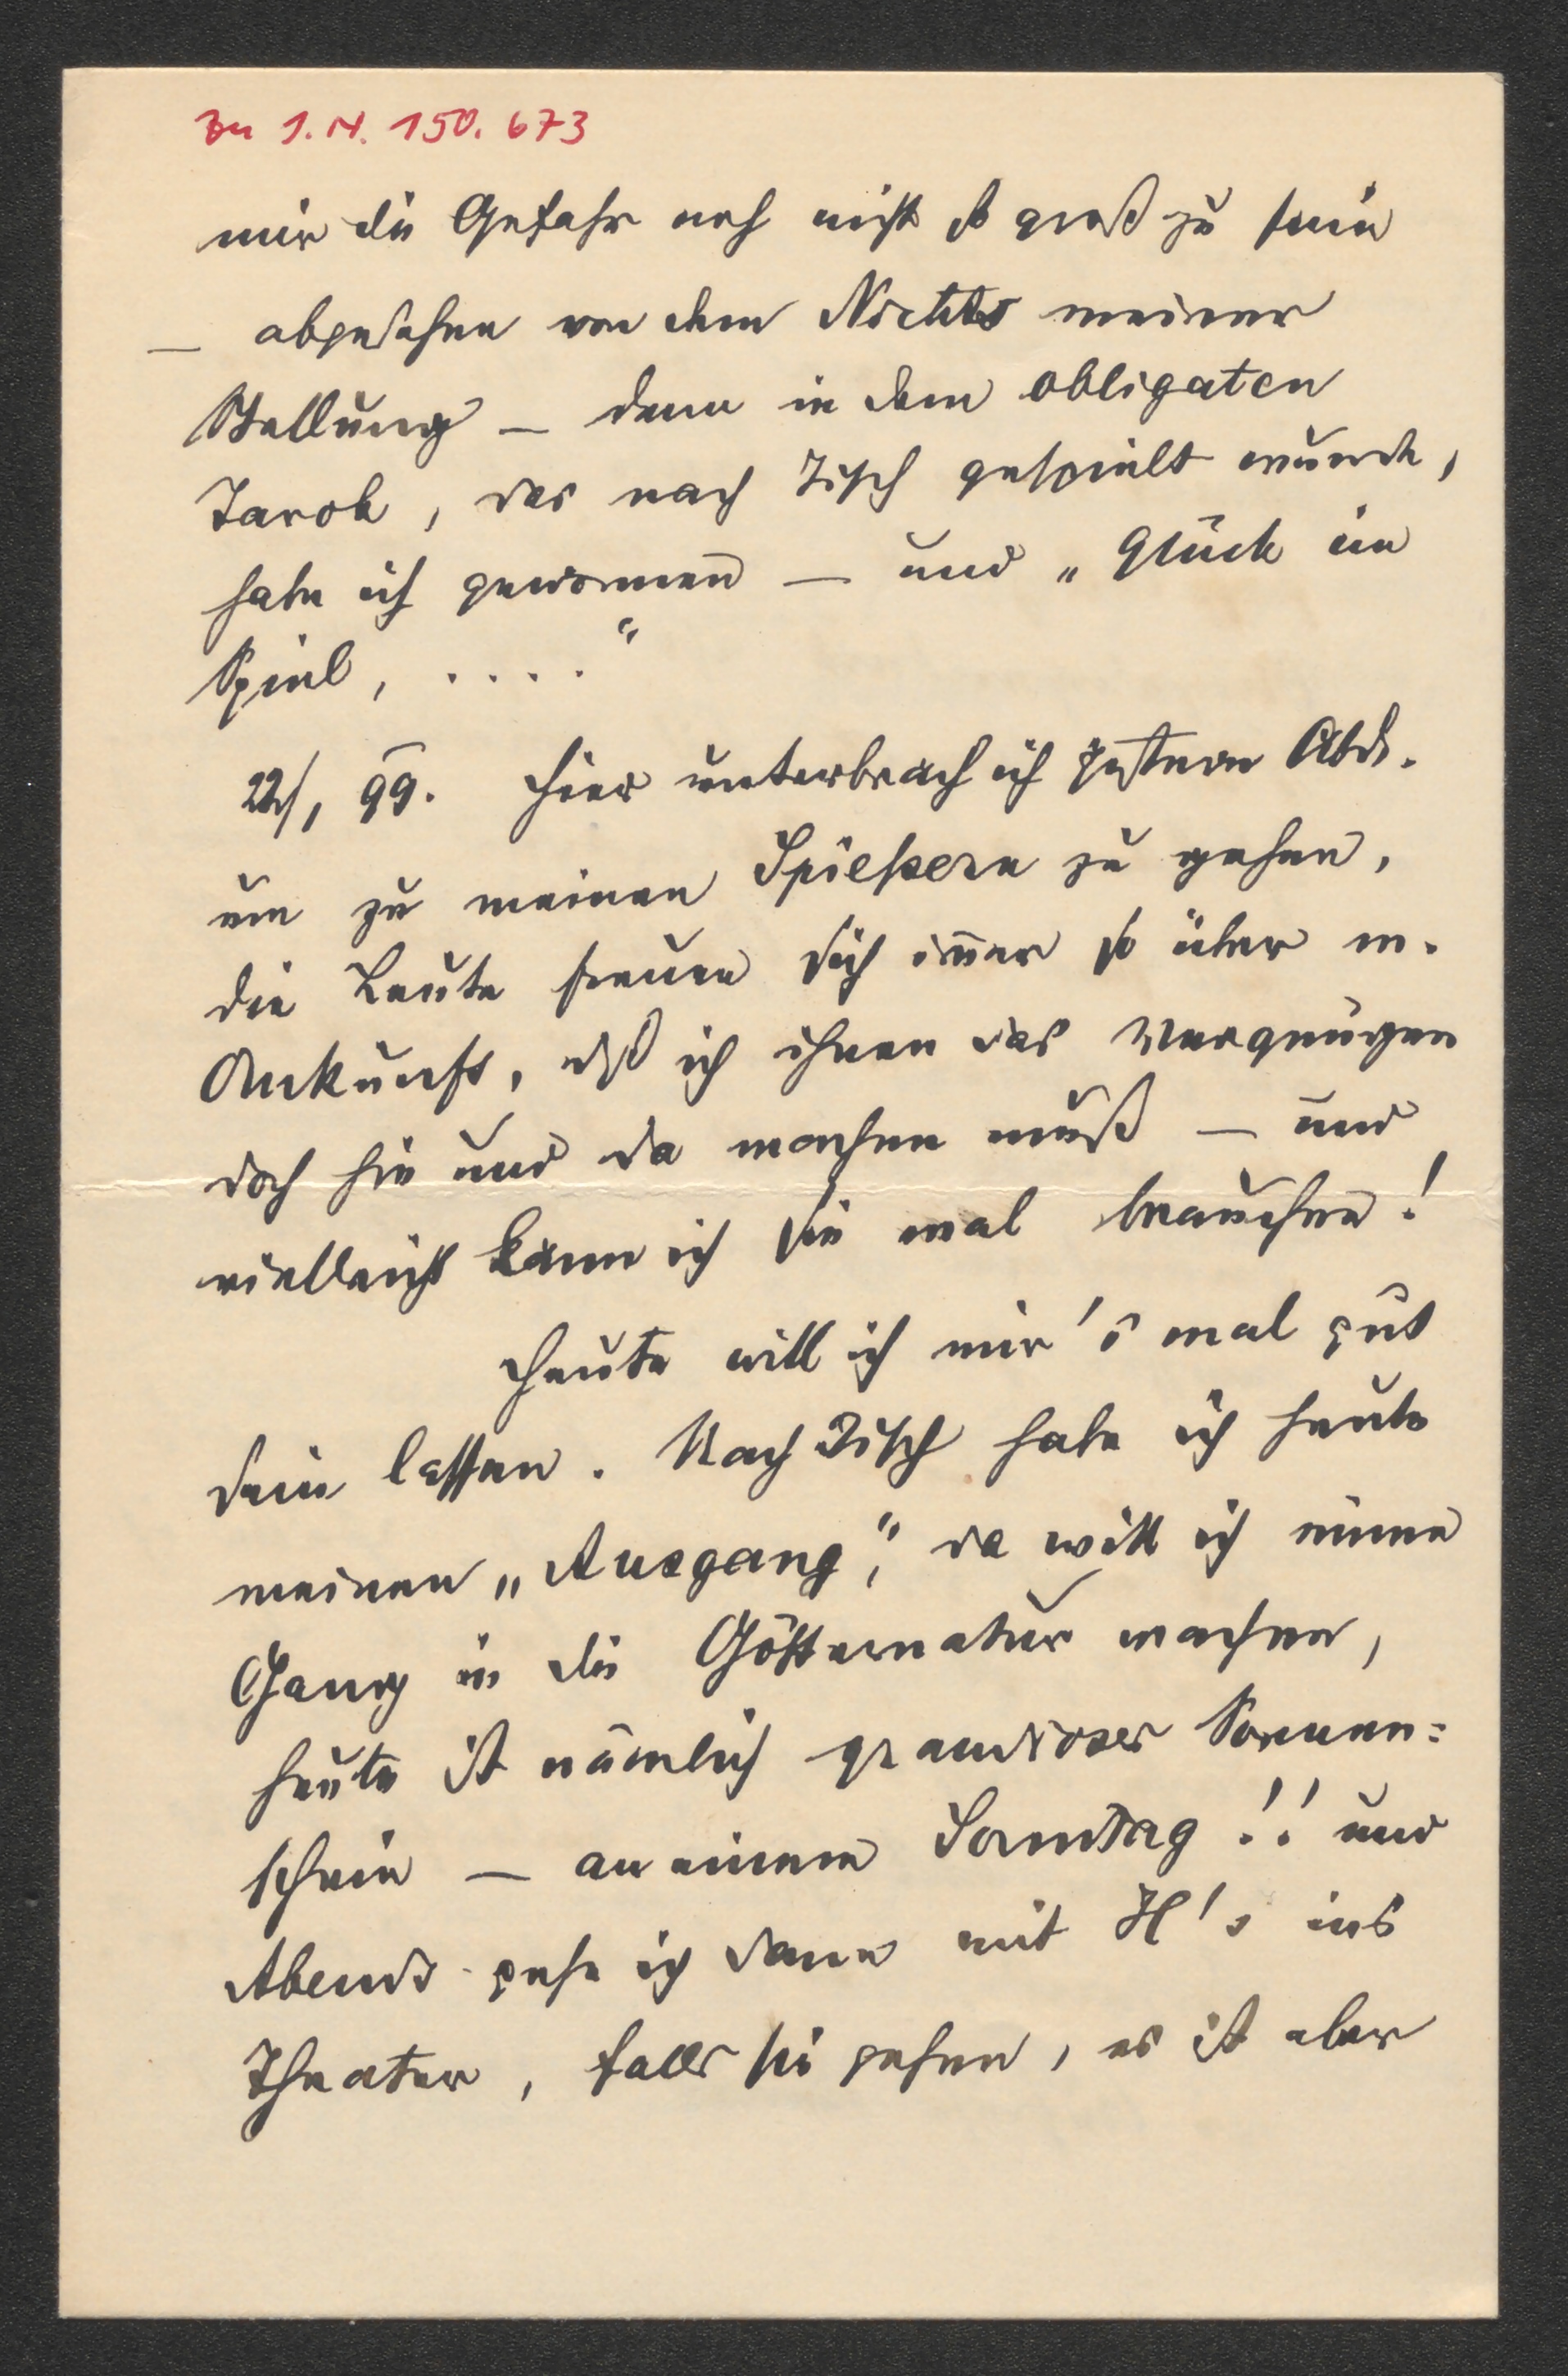 Zu I.N. 150.673
mir die Gefahr noch nicht so groß zu sein
— abgesehen von dem Nichts meiner
Stellung — denn in dem obligaten
Tarok, das nach Tisch gespielt wurde,
habe ich gewonnen — und „Glück im
Spiel, ....“
22/1 99. Hier unterbrach ich gestern Abds.
um zu meinen Spießern zu gehen,
die Leute freuen sich im̄er so über m.
Ankunft, dß ich ihnen das Vergnügen
doch hie und da machen muß — und
vielleicht kann ich sie mal brauchen!
Heute will ich mir's mal gut
sein lassen. Nach Tisch habe ich heute
meinen „Ausgang“, da will ich einen
Gang in die Götternatur machen,
heute ist nämlich grandioser Sonnen=
schein — an einem Sonntag!! und
Abends gehe ich dann mit H's ins
Theater, falls sie gehen, es ist aber